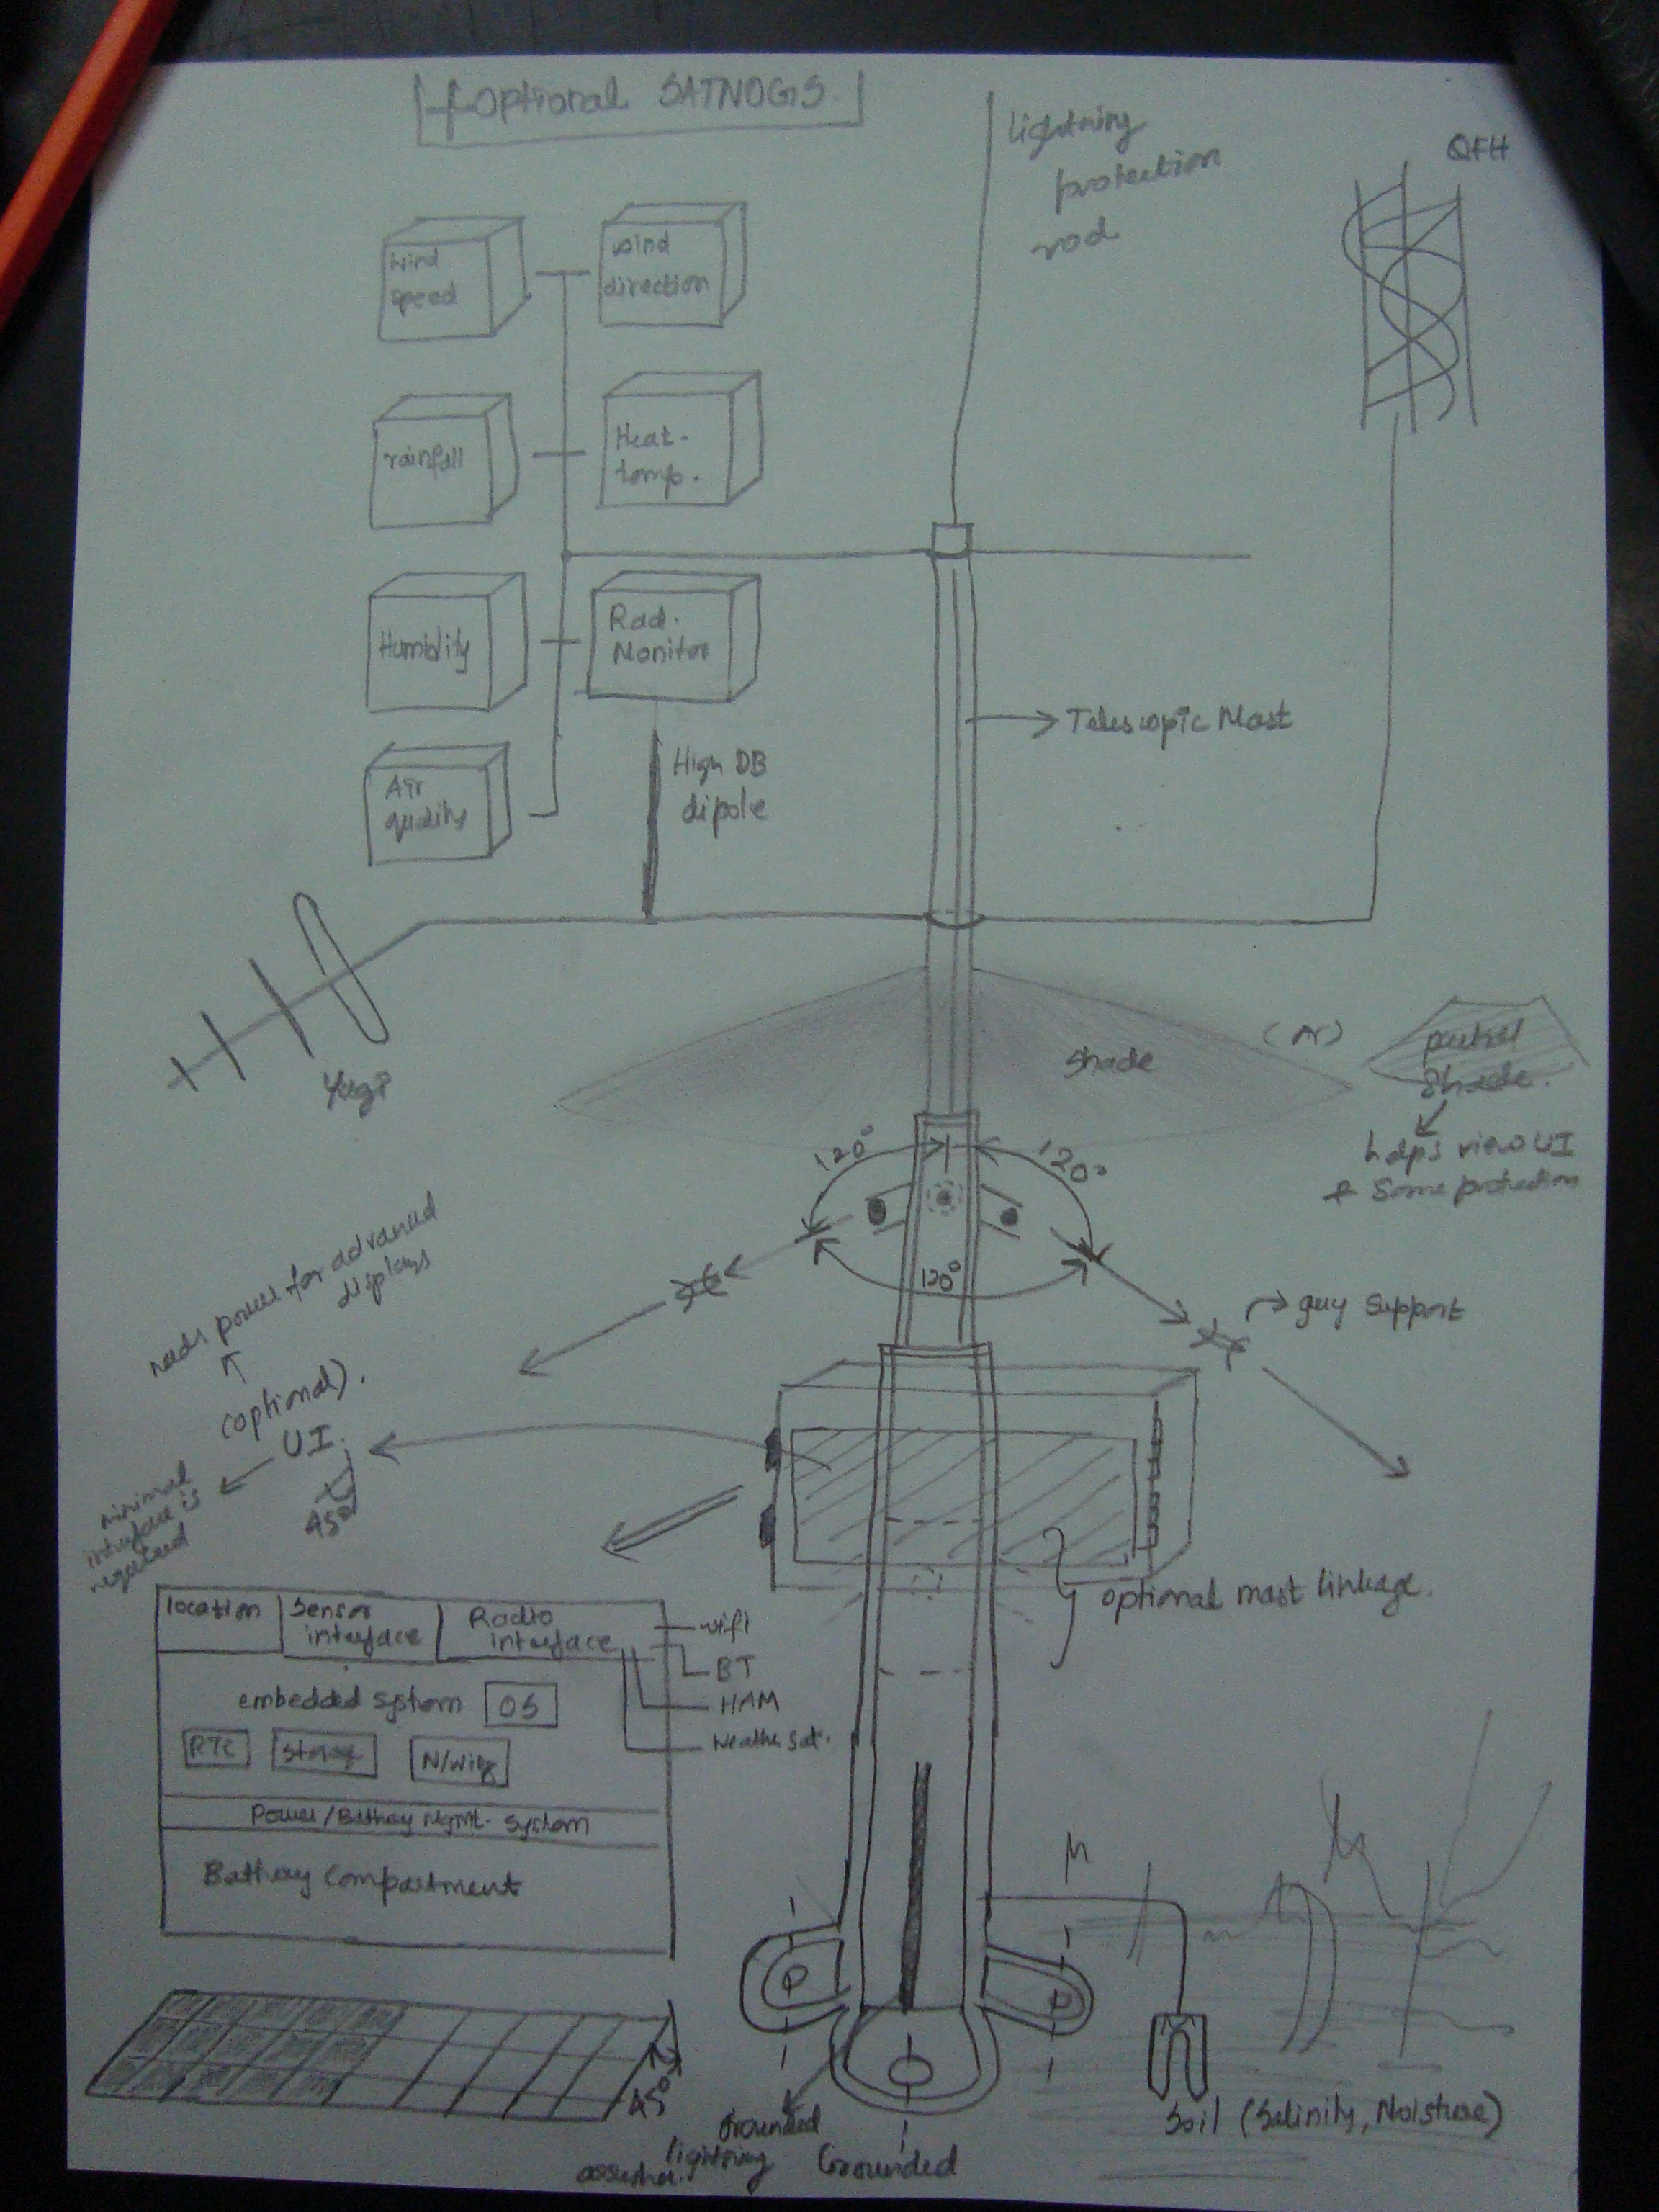 + Optional SATNOGS
lightning
protection
rod
QFH
Wind
speed
wind
direction
rainfall
Heat.
temp.
Humidity
Rad.
Monitor
Air
quality
High DB
dipole
Telescopic Mast
Yagi
Shade
(or)
Shade.
helps view UI
& Some protection
120°
120°
120°
guy Support
needs power for advanced
displays
(optional).
UI.
45°
minimal
interface is
required
optional mast linkage.
location
Sensor
interface
Radio
interface
wifi
BT
HAM
Weathe sat.
embedded system
OS
RTC
storage
N/wing
Power/Battery Mgmt. System
Battery Compartment
45°
Grounded
lightning
Grounded
Soil (Salinity, Moisture)